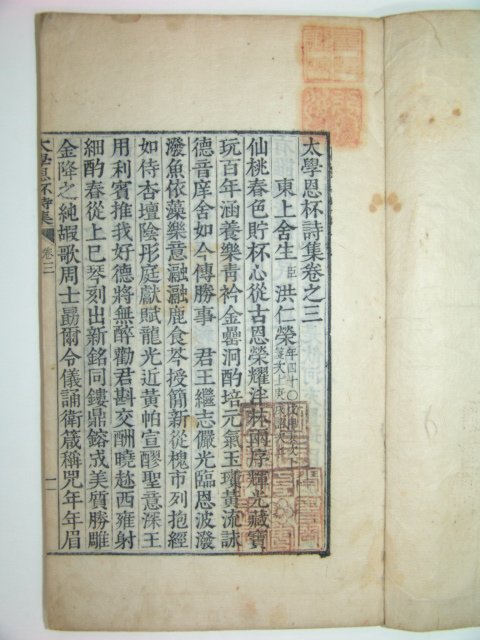 太學恩杯詩集卷之三
東上舍生臣洪仁榮
仙桃春色貯杯心從古恩榮耀泮林兩序輝光藏寶
玩百年涵養樂靑衿金罍泂酌培元氣玉瓚黃流詠
德音庠舍如今傳勝事 君王繼志儼光臨恩波潑
潑魚依藻樂意融融鹿食芩授簡新從槐市列抱經
如侍杏壇陰彤庭獻賦龍光近黃帕宣醪聖意深王
用利賓推我好德將無醉勸君斟交酬曉趁西雍射
細酌春從上巳琴刻出新銘同鏤鼎鎔成美質勝雕
金降之純嘏歌周士勗爾令儀誦衛箴稱兕年年眉
太學恩杯詩集 卷三 一